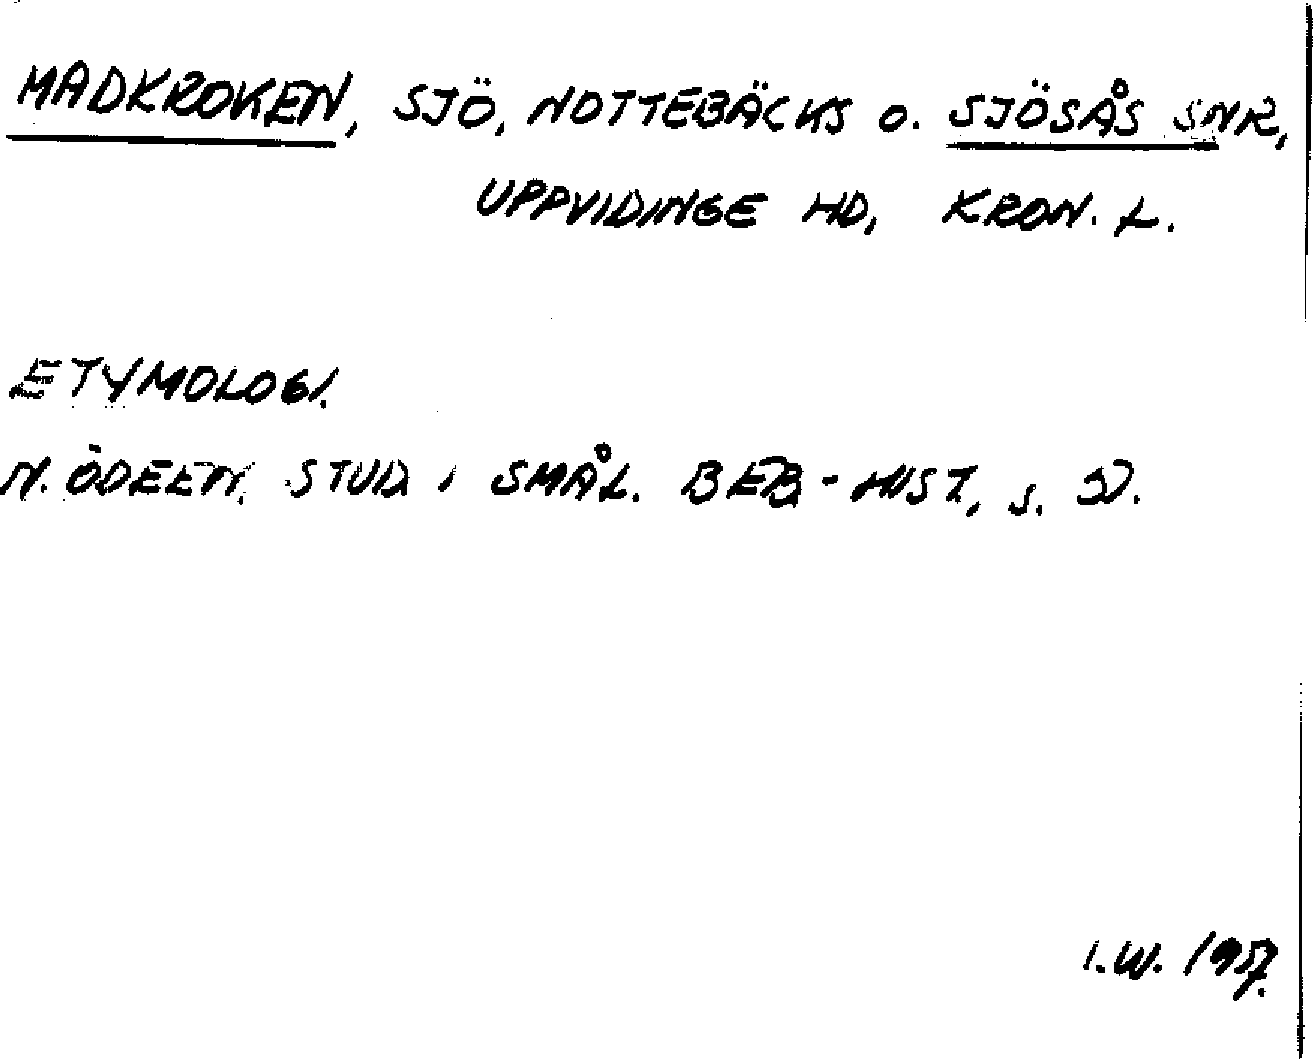 MADKROKEN, SJÖ, NOTTEBÄCKS O. SJÖSÅS SNR,
UPPVIDINGE HD, KRON. L.
ETYMOLOGI.
N. ÖDEEN, STUD I SMÅL. BEB-HIST, S.
I.W. 1957.